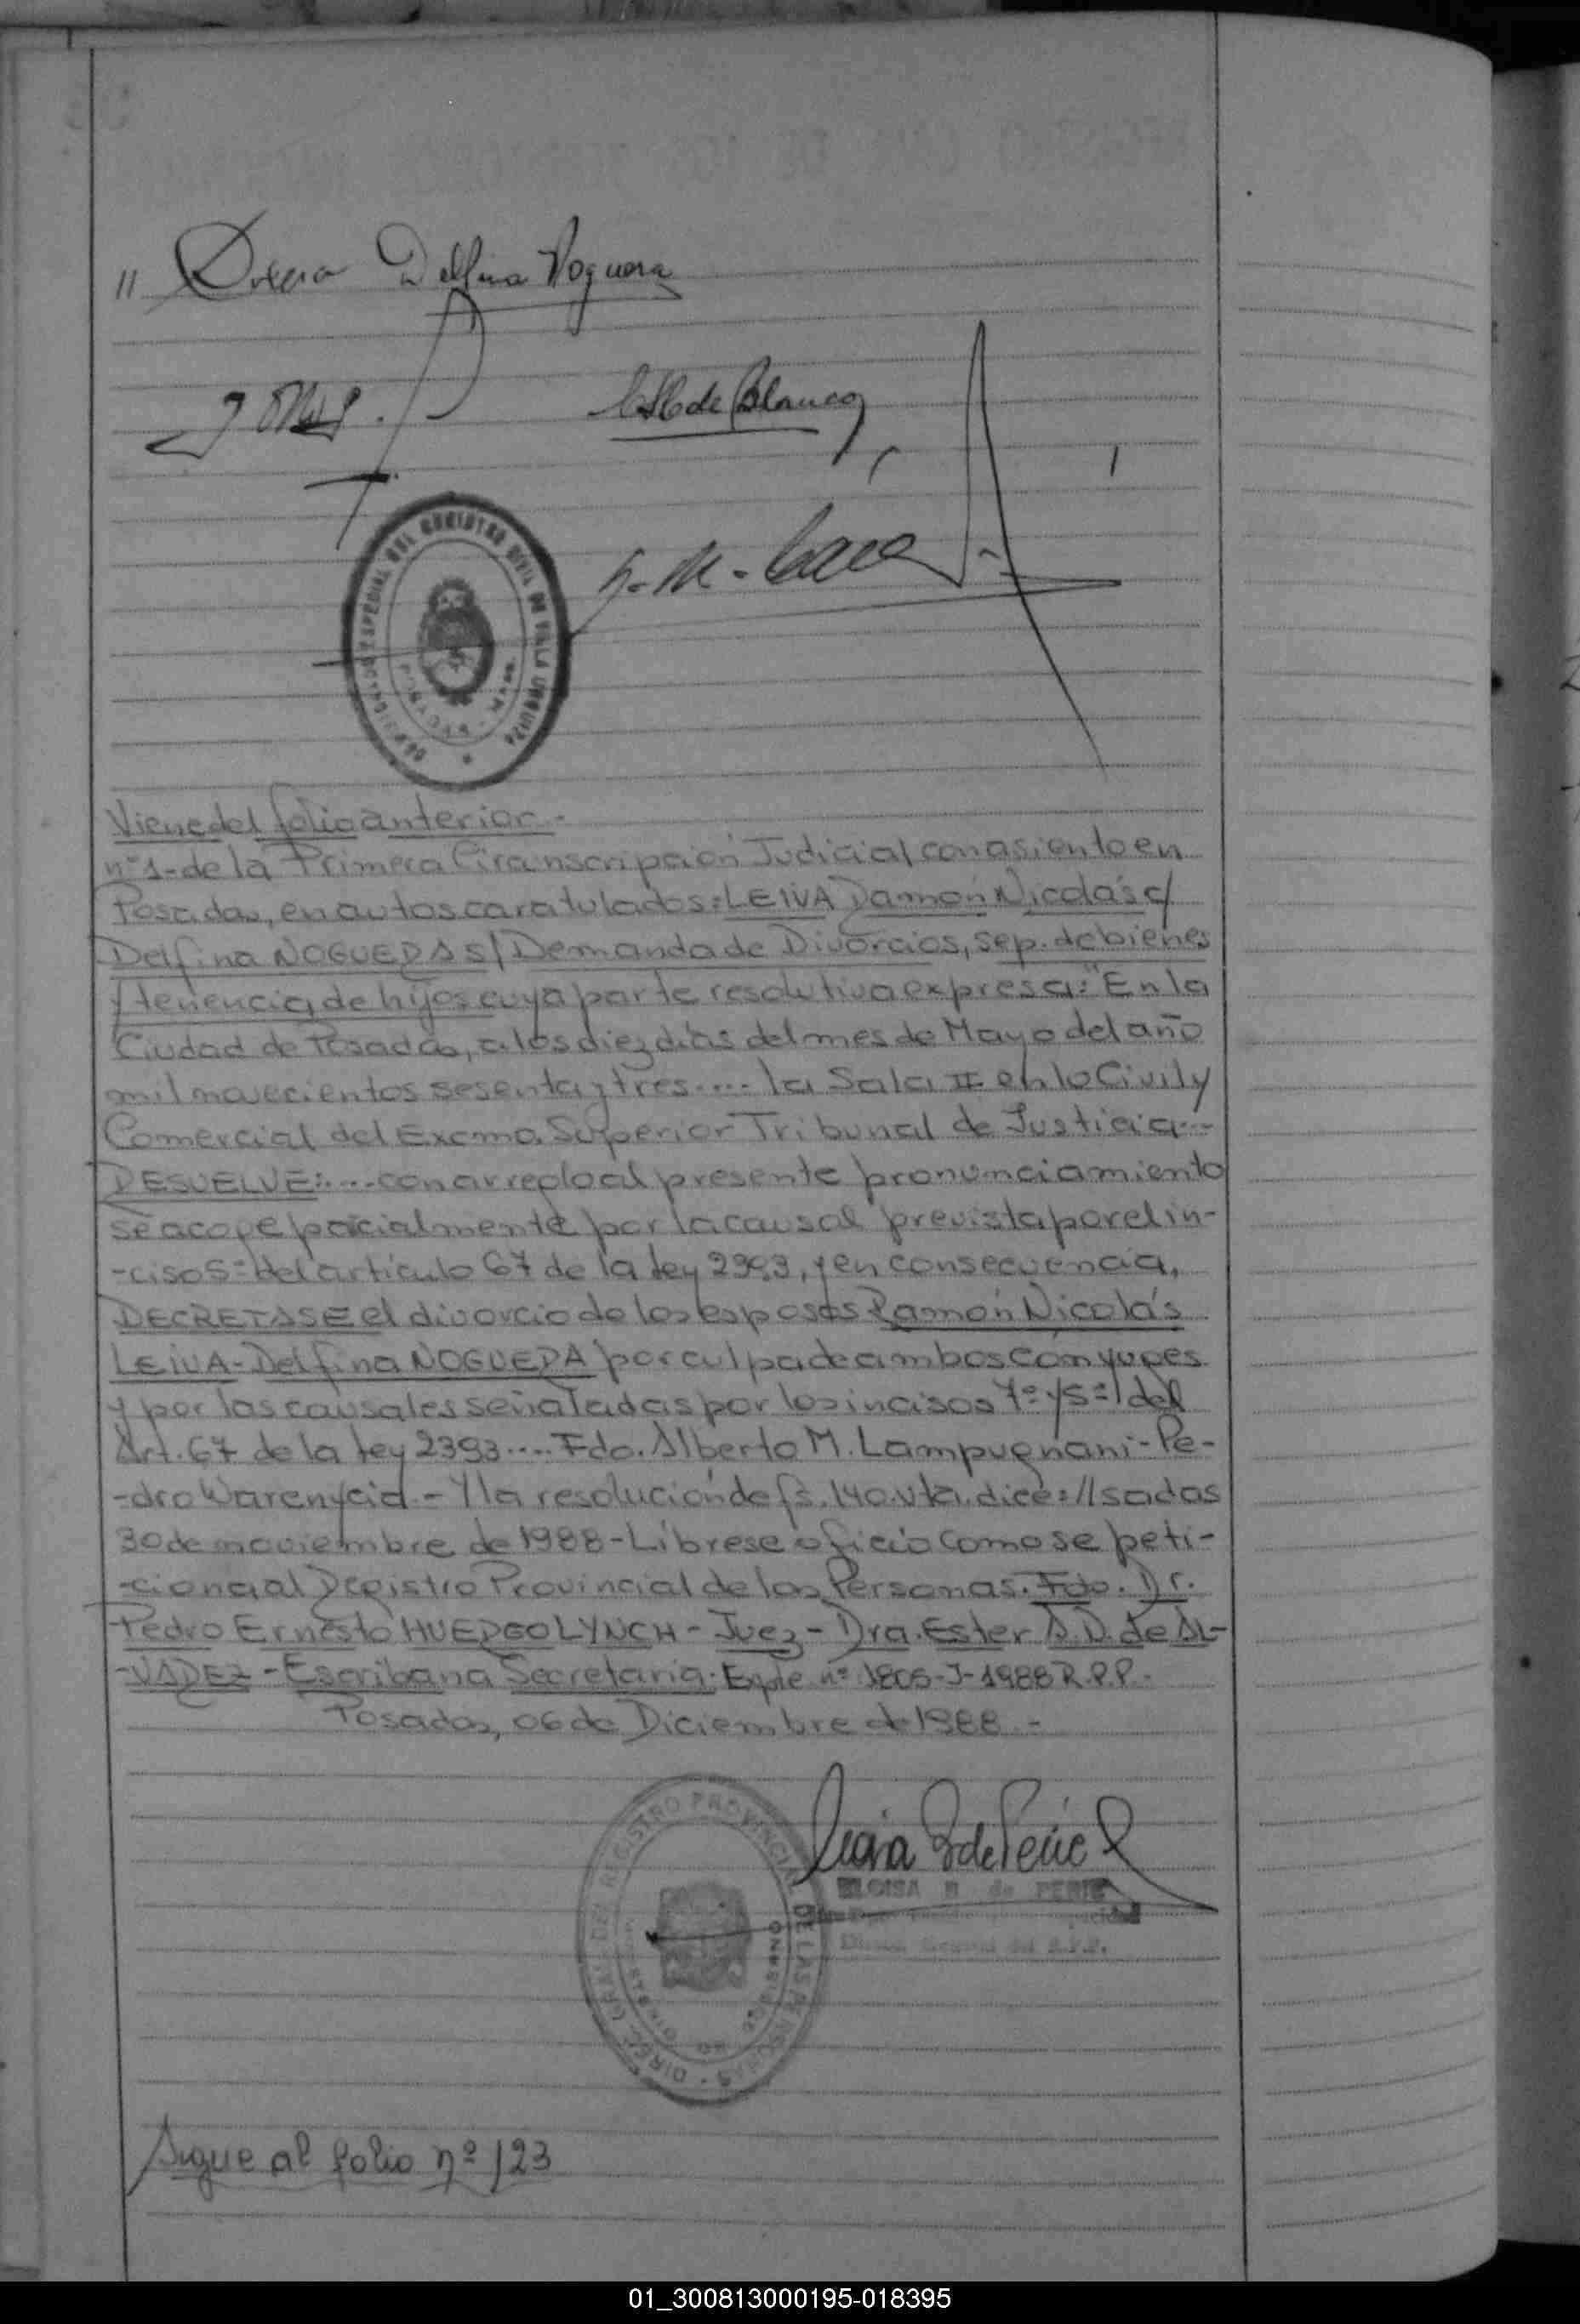 " Delfina Noguera
de Blanco
DEL REGISTRO CIVIL DE VILLA URQUIZA
POSADAS
Viene del folio anterior.-
nº1-de la Primera Circunscripción Judicial con asiento en
Posadas, en autos caratulados: LEIVA Ramón Nicolás c/
Delfina NOGUERA S/ Demanda de Divorcios, sep. de bienes
y tenencia de hijos cuya parte resolutiva expresa: "En la
Ciudad de Posadas, a los diez días del mes de Mayo del año
mil novecientos sesenta y tres.... la Sala II en lo Civil y
Comercial del Excmo. Superior Tribunal de Justicia...
RESUELVE:.... con arreglo al presente pronunciamiento
se acoge pacialmente por la causal prevista por el in-
-ciso 5º del artículo 67 de la Ley 2393, y en consecuencia,
DECRETASE el divorcio de los esposos Ramón Nicolás
LEIVA-Delfina NOGUERA por culpa de ambos cónyuges
y por las causales señaladas por los incisos 7º y 5º del
Art. 67 de la Ley 2393.... Fdo. Alberto M. Lampugnani-Pe-
-dro Warenycia.- Y la resolución de fs. 140.vta. dice: //sadas
30 de noviembre de 1988-Líbrese oficio como se peti-
-ciona al Registro Provincial de las Personas. Fdo. Dr.
Pedro Ernesto HUERGO LYNCH - Juez - Dra. Ester A.D. de AL-
-VAREZ - Escribana Secretaria. Expte nº 1805-J-1988 R.P.P.-
Posadas, 06 de Diciembre de 1988.-
DIREC. GRAL. DEL REGISTRO PROVINCIAL DE LAS PERSONAS
ELOISA B de PERIE
General del R.P.P.
Sigue al folio nº 123
01_300813000195-018395